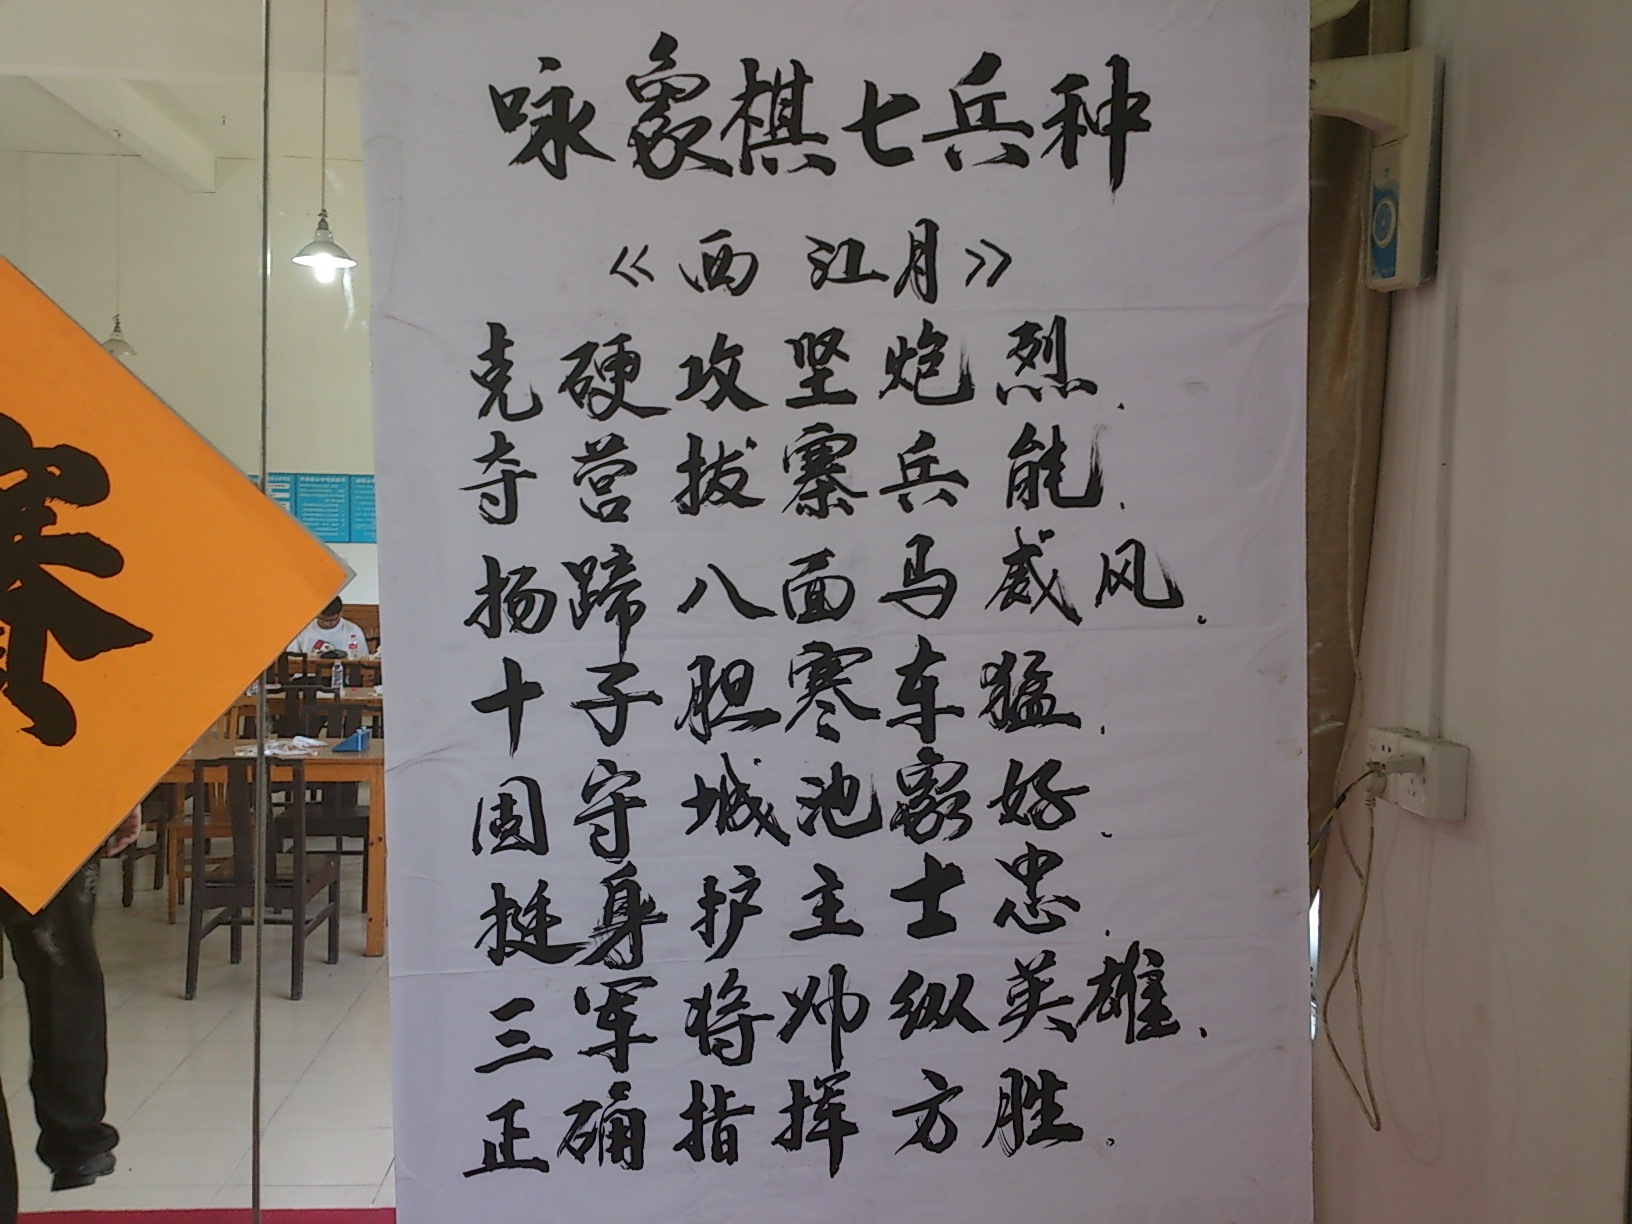 咏象棋七兵种
《西江月》
克硬攻坚炮烈.
夺营拔寨兵能.
扬蹄八面马威风.
十子胆寒车猛.
固守城池象好.
挺身护主士忠.
三军将帅纵英雄.
正确指挥方胜.